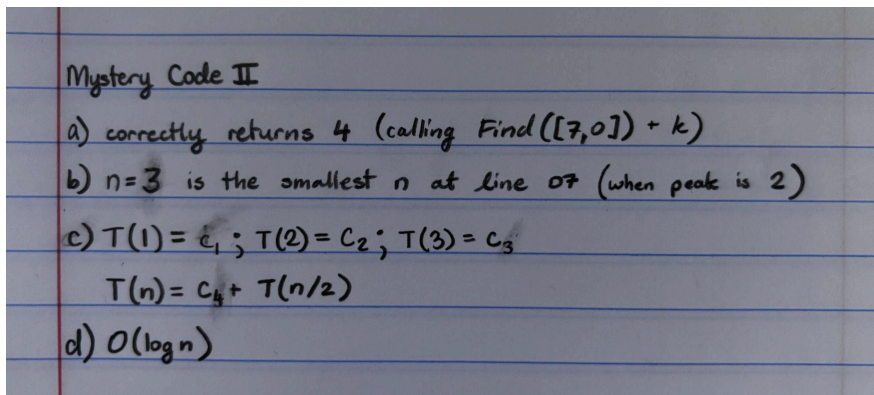 Mystery Code II
a) correctly returns 4 (calling Find([7,0]) + k)
b) n=3 is the smallest n at line 07 (when peak is 2)
c) T(1) = c₁; T(2) = C₂; T(3) = C₃
T(n) = C₄ + T(n/2)
d) O(log n)